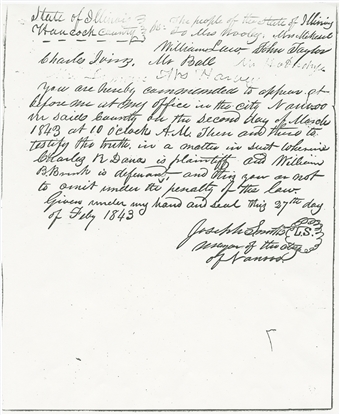 State of Illinois The people of the state of Illinois
Hancock County to Mrs Wooley. Mrs
William Law John Taylor
Charles Ivins, Mr Ball
Mrs
You are hereby commanded to appear at
before me at my office in the city Nauvoo
in said County on the Second day of March
1843 at 10 o'clock A.M. Then and there to
testify the truth, in a matter in suit wherein
Charles R Dana is plaintiff and William
B. Brink is defendant and this you are not
to omit under the penalty of the law.
Given under my hand and seal this 27th day
of Feby 1843
Joseph Smith L.S.
mayor of the city
of Nauvoo